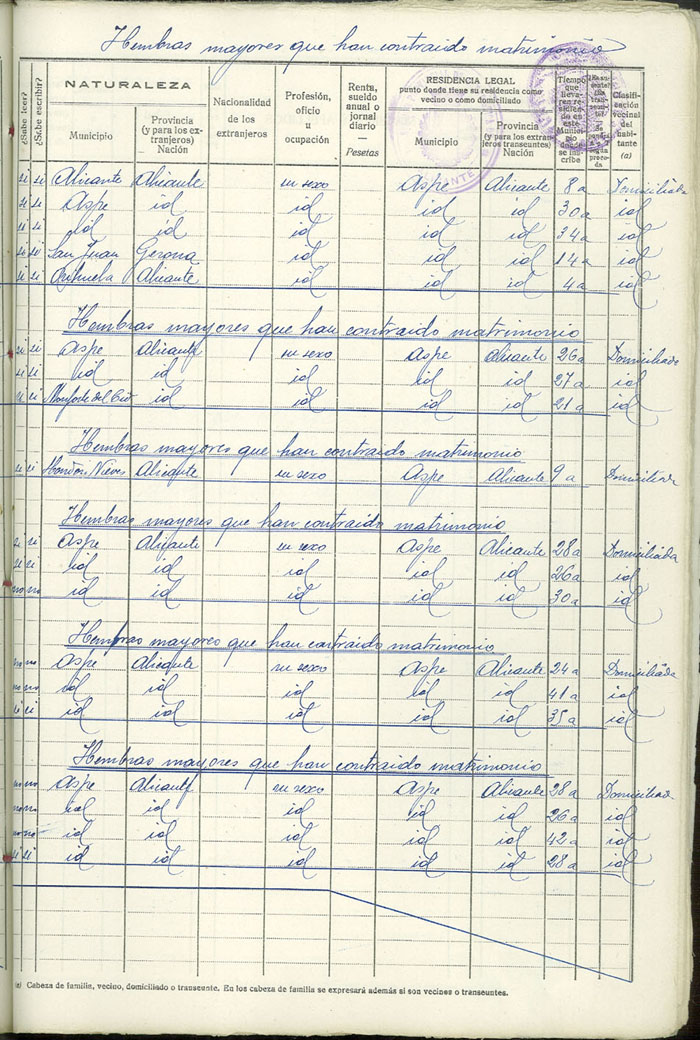 Hembras mayores que han contraido matrimonio
¿Sabe leer? ¿Sabe escribir? NATURALEZA Municipio Provincia (y para los extranjeros) Nación Nacionalidad de los extranjeros Profesión, oficio u ocupación Renta, sueldo anual o jornal diario — Pesetas RESIDENCIA LEGAL punto donde tiene su residencia como vecino o como domiciliado Municipio Provincia (y para los extranjeros transeuntes) Nación Tiempo que lleva residiendo en este Municipio donde se inscribe Clasificación vecinal del habitante (a)
si si Alicante Alicante su sexo Aspe Alicante 8 a Domiciliada
si si Aspe id id id id 30 a id
si si id id id id id 34 a id
si si San Juan Gerona id id id 14 a id
si si Orihuela Alicante id id id 4 a id
Hembras mayores que han contraido matrimonio
si si Aspe Alicante su sexo Aspe Alicante 26 a Domiciliado
si si id id id id id 27 a id
si si Monforte del Cid id id id id 21 a id
Hembras mayores que han contraido matrimonio
si si Nieves Alicante su sexo Aspe Alicante 9 a
Hembras mayores que han contraido matrimonio
si si Aspe Alicante su sexo Aspe Alicante 28 a Domiciliada
si si id id id id id 26 a id
no no id id id id id 30 a id
Hembras mayores que han contraido matrimonio
no no Aspe Alicante su sexo Aspe Alicante 24 a Domiciliada
no no id id id id id 41 a id
si si id id id id id 35 a id
Hembras mayores que han contraido matrimonio
no no Aspe Alicante su sexo Aspe Alicante 28 a Domiciliad
no no id id id id id 26 a id
no no id id id id id 42 a id
si si id id id id id 28 a id
(a) Cabeza de familia, vecino, domiciliado o transeunte. En los cabeza de familia se expresará además si son vecinos o transeuntes.